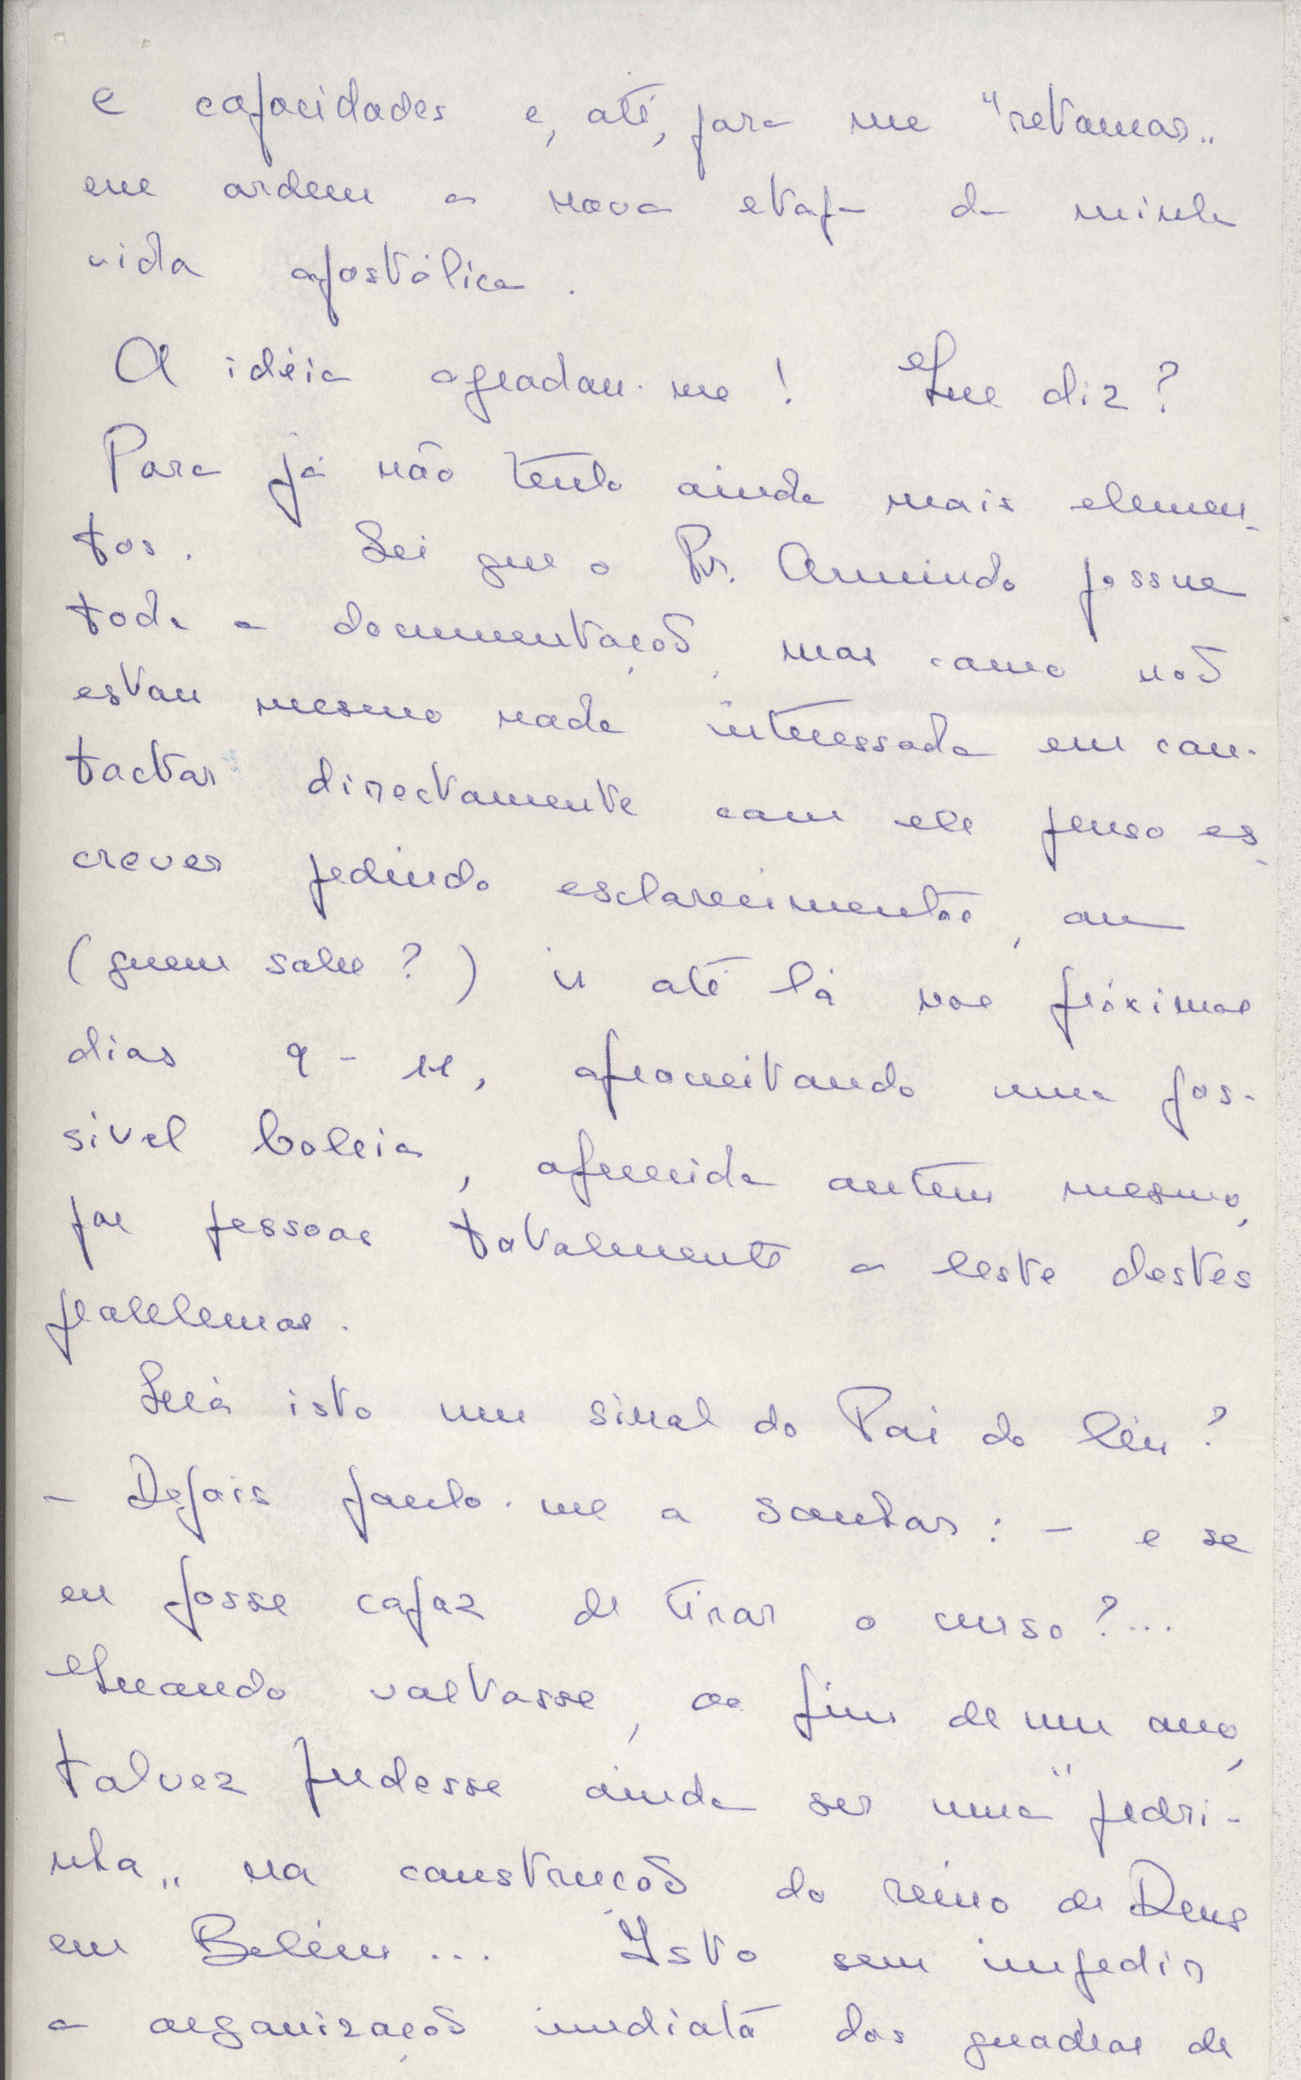 e capacidades e, até, para me "retomar"
em ordem a nova etapa da minha
vida apostólica.
A idéia agradou-me! Que diz?
Para já não tenho ainda mais elemen-
tos. Sei que o Pr. Armindo possue
toda a documentação, mas como não
estou mesmo nada interessada em con-
tactar directamente com ele penso es-
crever pedindo esclarecimentos, ou
(quem sabe?) ir até lá nos próximos
dias 9-11, aproveitando uma pos-
sivel boleia, oferecida ontem mesmo,
por pessoas totalmente a leste destes
problemas.
Será isto um sinal do Pai do Céu?
- Depois ponho-me a sonhar: - e se
eu fosse capaz de tirar o curso?...
Quando voltasse, ao fim de um ano,
talvez pudesse ainda ser uma "pedri-
nha" na construção do reino de Deus
em Belém... Isto sem impedir
a organização imediata dos quadros de